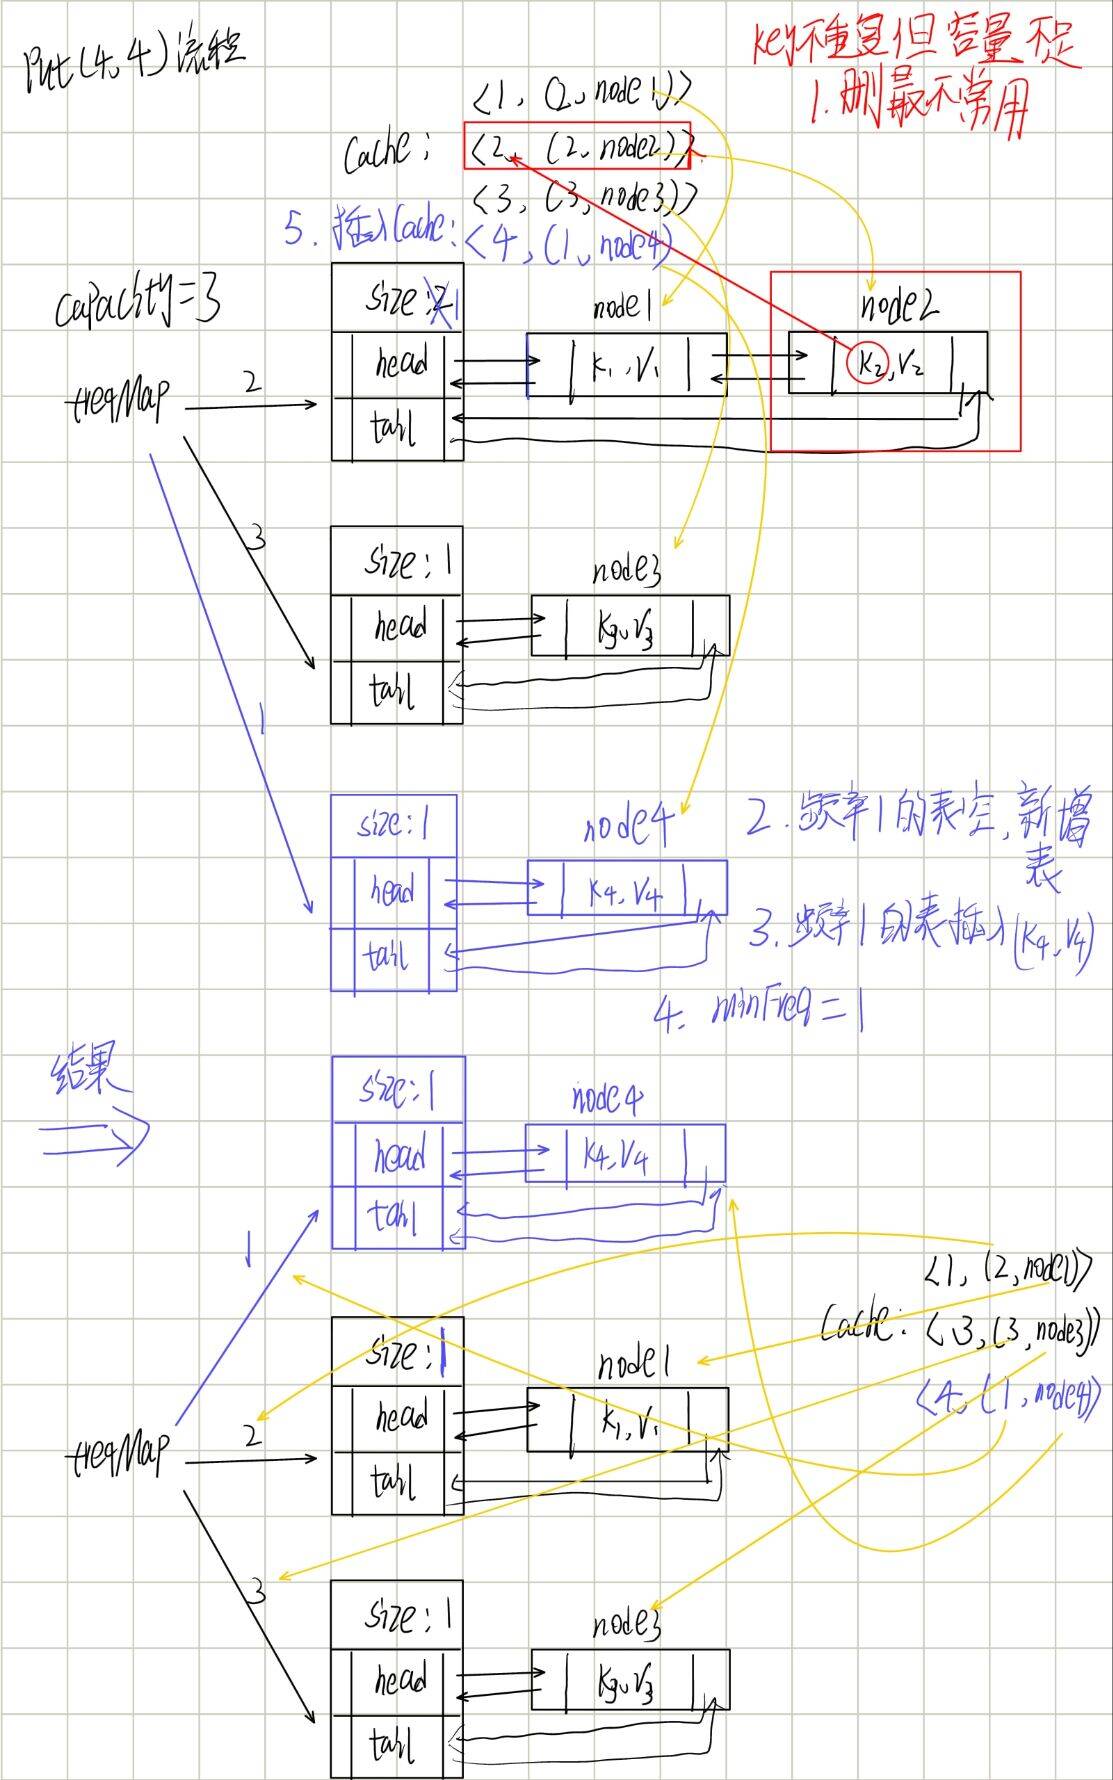 Put(4,4)流程
key不重复但容量不足
1. 删最不常用
<1, (2, node1)>
Cache: <2, (2, node2)>
<3, (3, node3)>
5. 插入Cache: <4, (1, node4)
capacity=3
size: 2 1
node1
node2
head
K1, V1
K2, V2
freqMap
2
tail
3
size: 1
node3
head
K3, V3
tail
1
size: 1
node4
2. 频率1的表空, 新增
表
head
K4, V4
3. 频率1的表插入(K4, V4)
tail
4. minFreq = 1
结果
size: 1
node4
head
K4, V4
tail
1
<1, (2, node1)>
Cache: <3, (3, node3)>
<4, (1, node4)>
size: 1
node1
head
K1, V1
freqMap
2
tail
3
size: 1
node3
head
K3, V3
tail